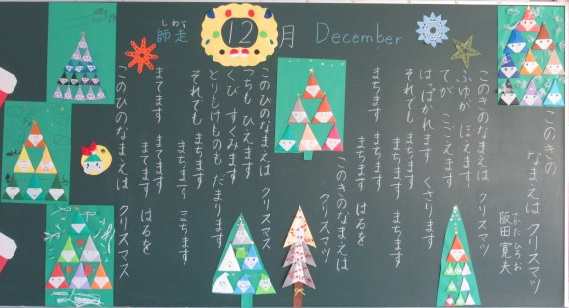 しわす
師走 12月 December
このきの
なまえは クリスマツ
さかた ひろお
阪田 寛夫
このきのなまえは クリスマツ
ふゆが ほえます
てが こごえます
はっぱかれます くさります
それでも まちます
まちます まちます
まちます まちます
まちます はるを
このきのなまえは クリスマツ
このひのなまえは クリスマス
つちも ひえます
くび すくみます
とりもけものも だまります
それでも まちます
まちます まちます
まてます まてます
まてます はるを
このひのなまえは クリスマス